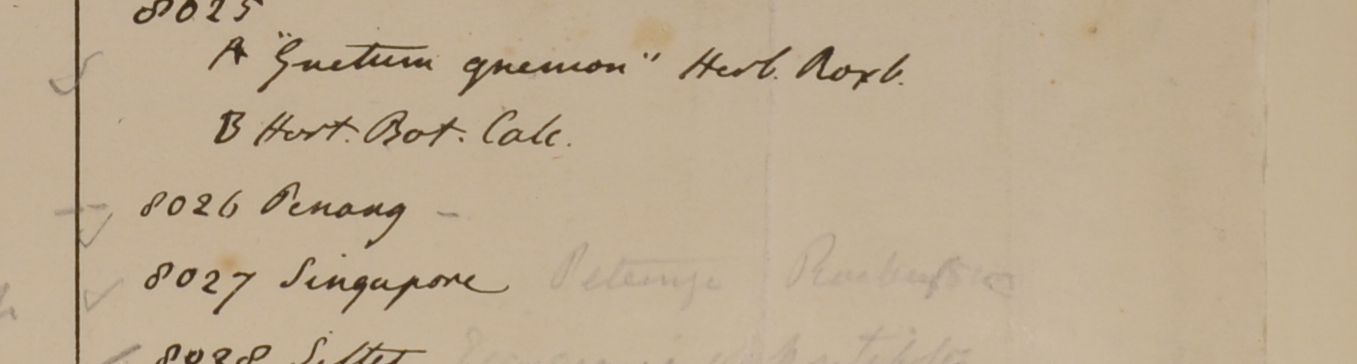 8025
A "Gnetum gnemon" Herb. Roxb.
B Hort. Bot. Calc.
8026 Penang -
8027 Singapore
8028